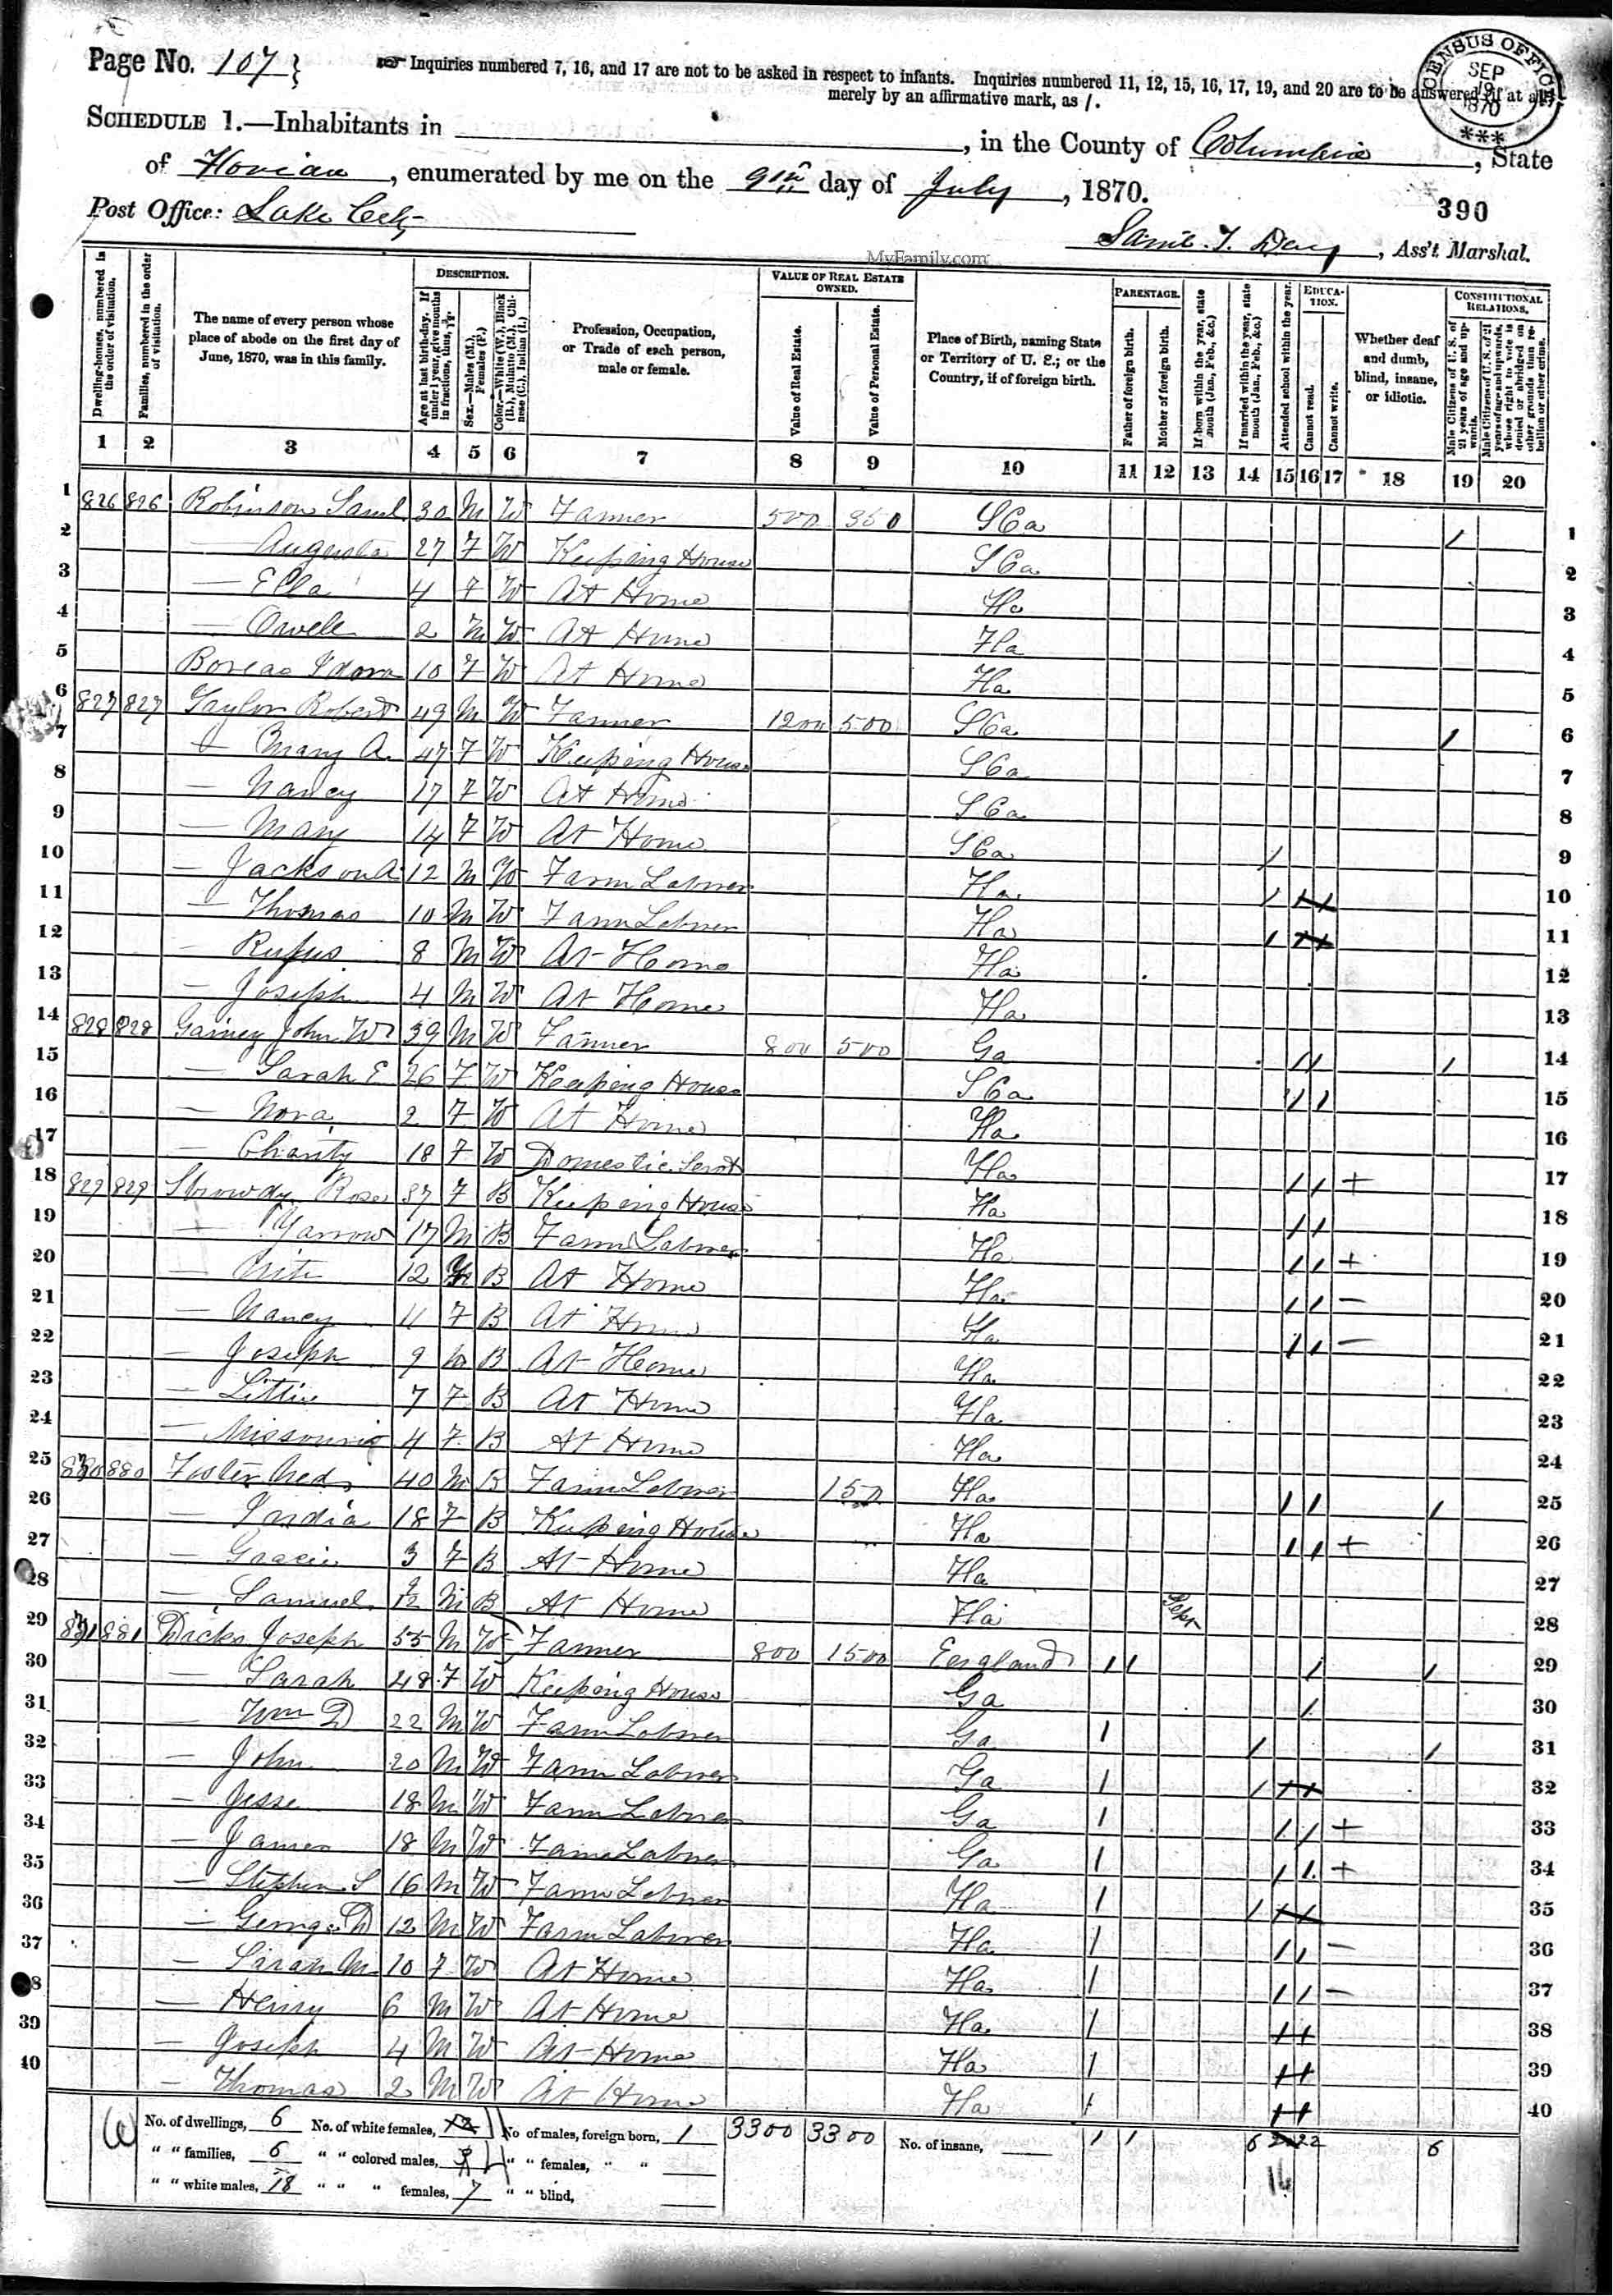 Page No. 107 }
Inquiries numbered 7, 16, and 17 are not to be asked in respect to infants. Inquiries numbered 11, 12, 15, 16, 17, 19, and 20 are to be answered if at all merely by an affirmative mark, as /.
CENSUS OFFICE SEP 19 1870 ***
SCHEDULE 1.—Inhabitants in , in the County of Columbia, State
of , enumerated by me on the 9th day of July, 1870.
390
Post Office: Lake City
Ass't Marshal.
MyFamily.com
Dwelling-houses, numbered in the order of visitation.
Families, numbered in the order of visitation.
The name of every person whose place of abode on the first day of June, 1870, was in this family.
DESCRIPTION.
Age at last birth-day. If under 1 year, give months in fractions, thus, 3/12.
Sex.—Males (M.), Females (F.)
Color.—White (W.), Black (B.), Mulatto (M.), Chinese (C.), Indian (I.)
Profession, Occupation, or Trade of each person, male or female.
VALUE OF REAL ESTATE OWNED.
Value of Real Estate.
Value of Personal Estate.
Place of Birth, naming State or Territory of U. S.; or the Country, if of foreign birth.
PARENTAGE.
Father of foreign birth.
Mother of foreign birth.
If born within the year, state month (Jan., Feb., &c.)
If married within the year, state month (Jan., Feb., &c.)
Attended school within the year.
EDUCATION.
Cannot read.
Cannot write.
Whether deaf and dumb, blind, insane, or idiotic.
CONSTITUTIONAL RELATIONS.
Male Citizens of U. S. of 21 years of age and upwards.
Male Citizens of U. S. of 21 years of age and upwards, whose right to vote is denied or abridged on other grounds than rebellion or other crime.
1 2 3 4 5 6 7 8 9 10 11 12 13 14 15 16 17 18 19 20
1 826 826 Robinson Saml. 30 M W Farmer 500 350 S Ca / 1
2 — Augusta 27 F W Keeping House S Ca 2
3 — Ella 4 F W At Home Fla 3
4 — 2 M W At Home Fla 4
5 10 F W At Home Fla 5
6 827 827 Taylor Robert 49 M W Farmer 1200 500 S Ca / 6
7 — Mary A. 47 F W Keeping House S Ca 7
8 — Nancy 17 F W At Home S Ca 8
9 — Mary 14 F W At Home S Ca / 9
10 — Jackson A 12 M W Farm Laborer Fla / 10
11 — Thomas 10 M W Farm Laborer Fla / 11
12 — Rufus 8 M W At Home Fla 12
13 — Joseph 4 M W At Home Fla 13
14 828 828 Gainey John W 39 M W Farmer 800 500 Ga / / / 14
15 — Sarah E 26 F W Keeping House S Ca / / 15
16 — Nora 2 F W At Home Fla 16
17 — Charity 18 F W Domestic Servt Fla / / + 17
18 829 829 37 F B Keeping House Fla / / 18
19 — Yarrow 17 M B Farm Laborer Fla / / + 19
20 — 12 B At Home Fla / / — 20
21 — Nancy 11 F B At Home Fla / / — 21
22 — Joseph 9 M B At Home Fla 22
23 — Littie 7 F B At Home Fla 23
24 — Missouria 4 F B At Home Fla 24
25 830 880 Foster Ned 40 M B Farm Laborer 150 Fla / / / 25
26 — India 18 F B Keeping House Fla / / + 26
27 — Gracie 3 F B At Home Fla 27
28 — Samuel M B At Home Fla Sept 28
29 831 881 Dicks Joseph 55 M W Farmer 800 1500 England / / / / 29
30 — Sarah 48 F W Keeping House Ga / 30
31 — Wm D 22 M W Farm Laborer Ga / / / 31
32 — John 20 M W Farm Laborer Ga / / 32
33 — Jesse 18 M W Farm Laborer Ga / / / + 33
34 — James 18 M W Farm Laborer Ga / / / + 34
35 — Stephen S 16 M W Farm Laborer Fla / / 35
36 — George D 12 M W Farm Laborer Fla / / / — 36
37 — Sarah M 10 F W At Home Fla / / / — 37
38 — Henry 6 M W At Home Fla / 38
39 — Joseph 4 M W At Home Fla / 39
40 — Thomas 2 M W At Home Fla / 40
No. of dwellings, 6 No. of white females, No of males, foreign born, 1 3300 3300 No. of insane, 1 1 6 22 6
" " families, 6 " " colored males, " " females, " " 16
" " white males, 18 " " " females, 7 " " blind,